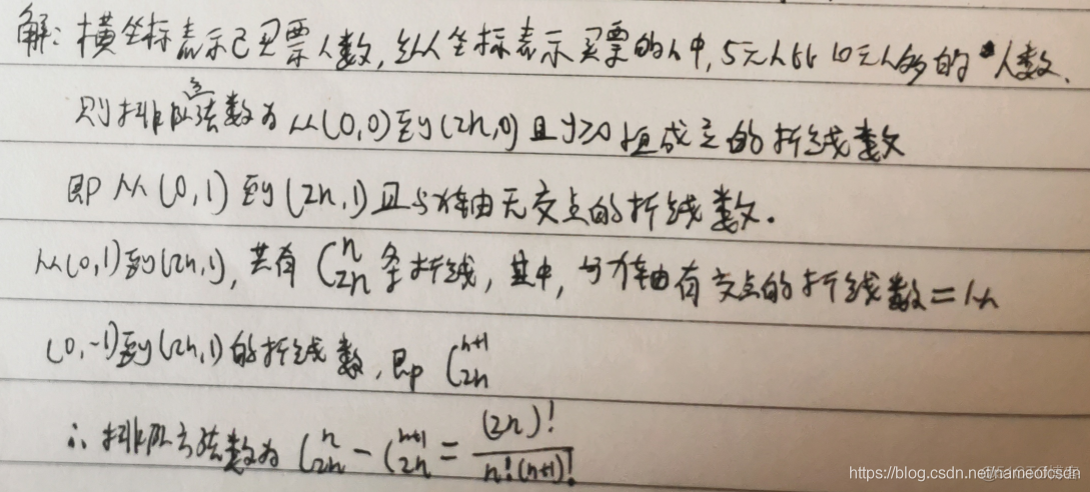 解：横坐标表示已买票人数，纵坐标表示买票的人中，5元人比10元人多的人数，
则排队方法数为从(0,0)到(2n,0)且y≥0恒成立的折线数
即从(0,1)到(2n,1)且与x轴无交点的折线数.
从(0,1)到(2n,1)，共有 C_{2n}^{n} 条折线，其中，与x轴有交点的折线数=从
(0,-1)到(2n,1)的折线数，即 C_{2n}^{n+1}
∴ 排队方法数为 C_{2n}^{n} - C_{2n}^{n+1} = \frac{(2n)!}{n!(n+1)!}
https://blog.csdn.net/nameofcsdn